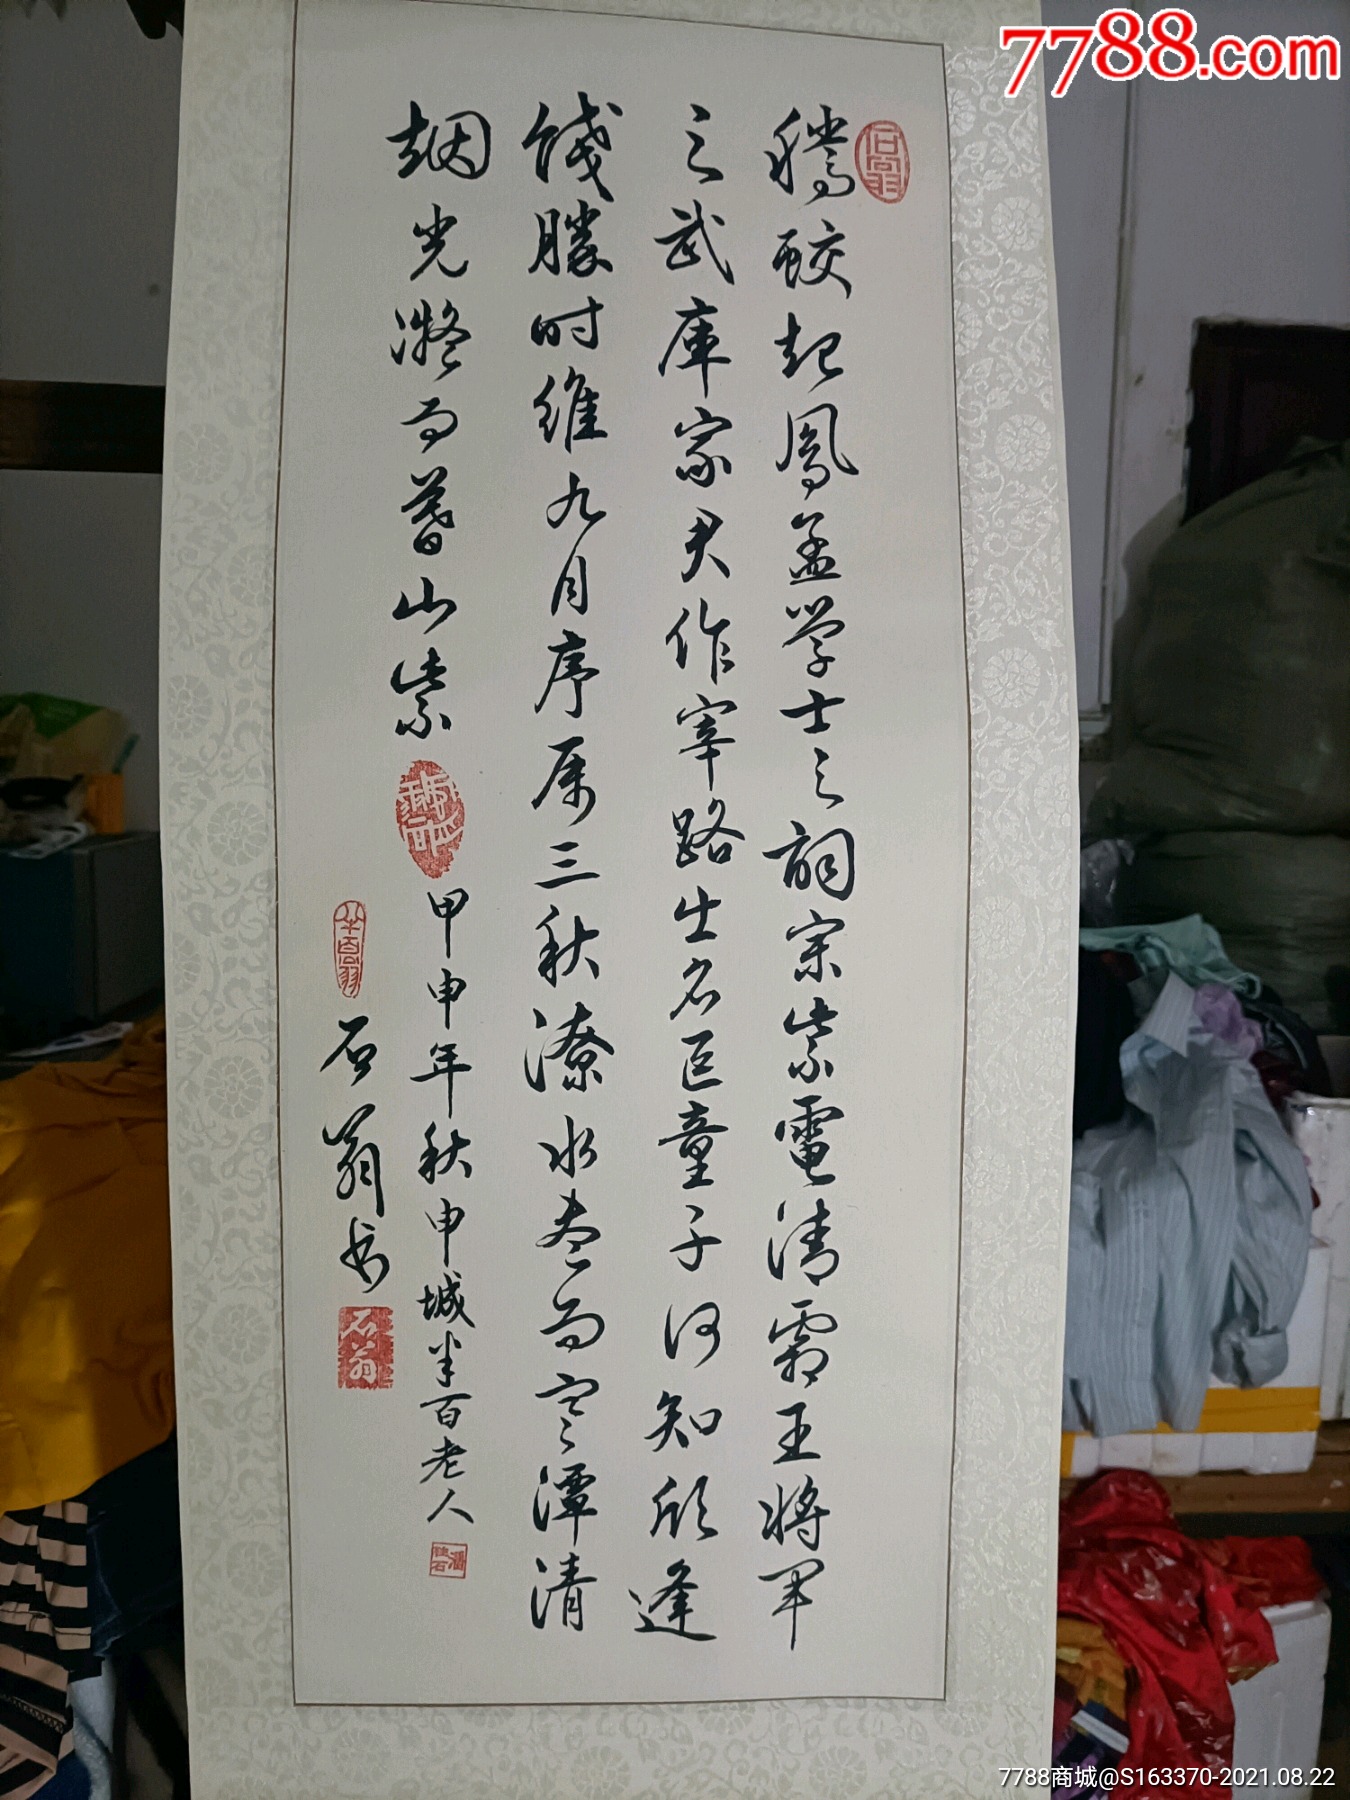 7788.com
石翁
騰蛟起鳳孟学士之詞宗紫電清霜王將军
之武庫家君作宰路出名区童子何知欣逢
餞勝时維九月序属三秋潦水尽而寒潭清
烟光凝而暮山紫
甲申年秋申城半百老人
半百翁
石翁书
石翁
7788商城@S163370-2021.08.22